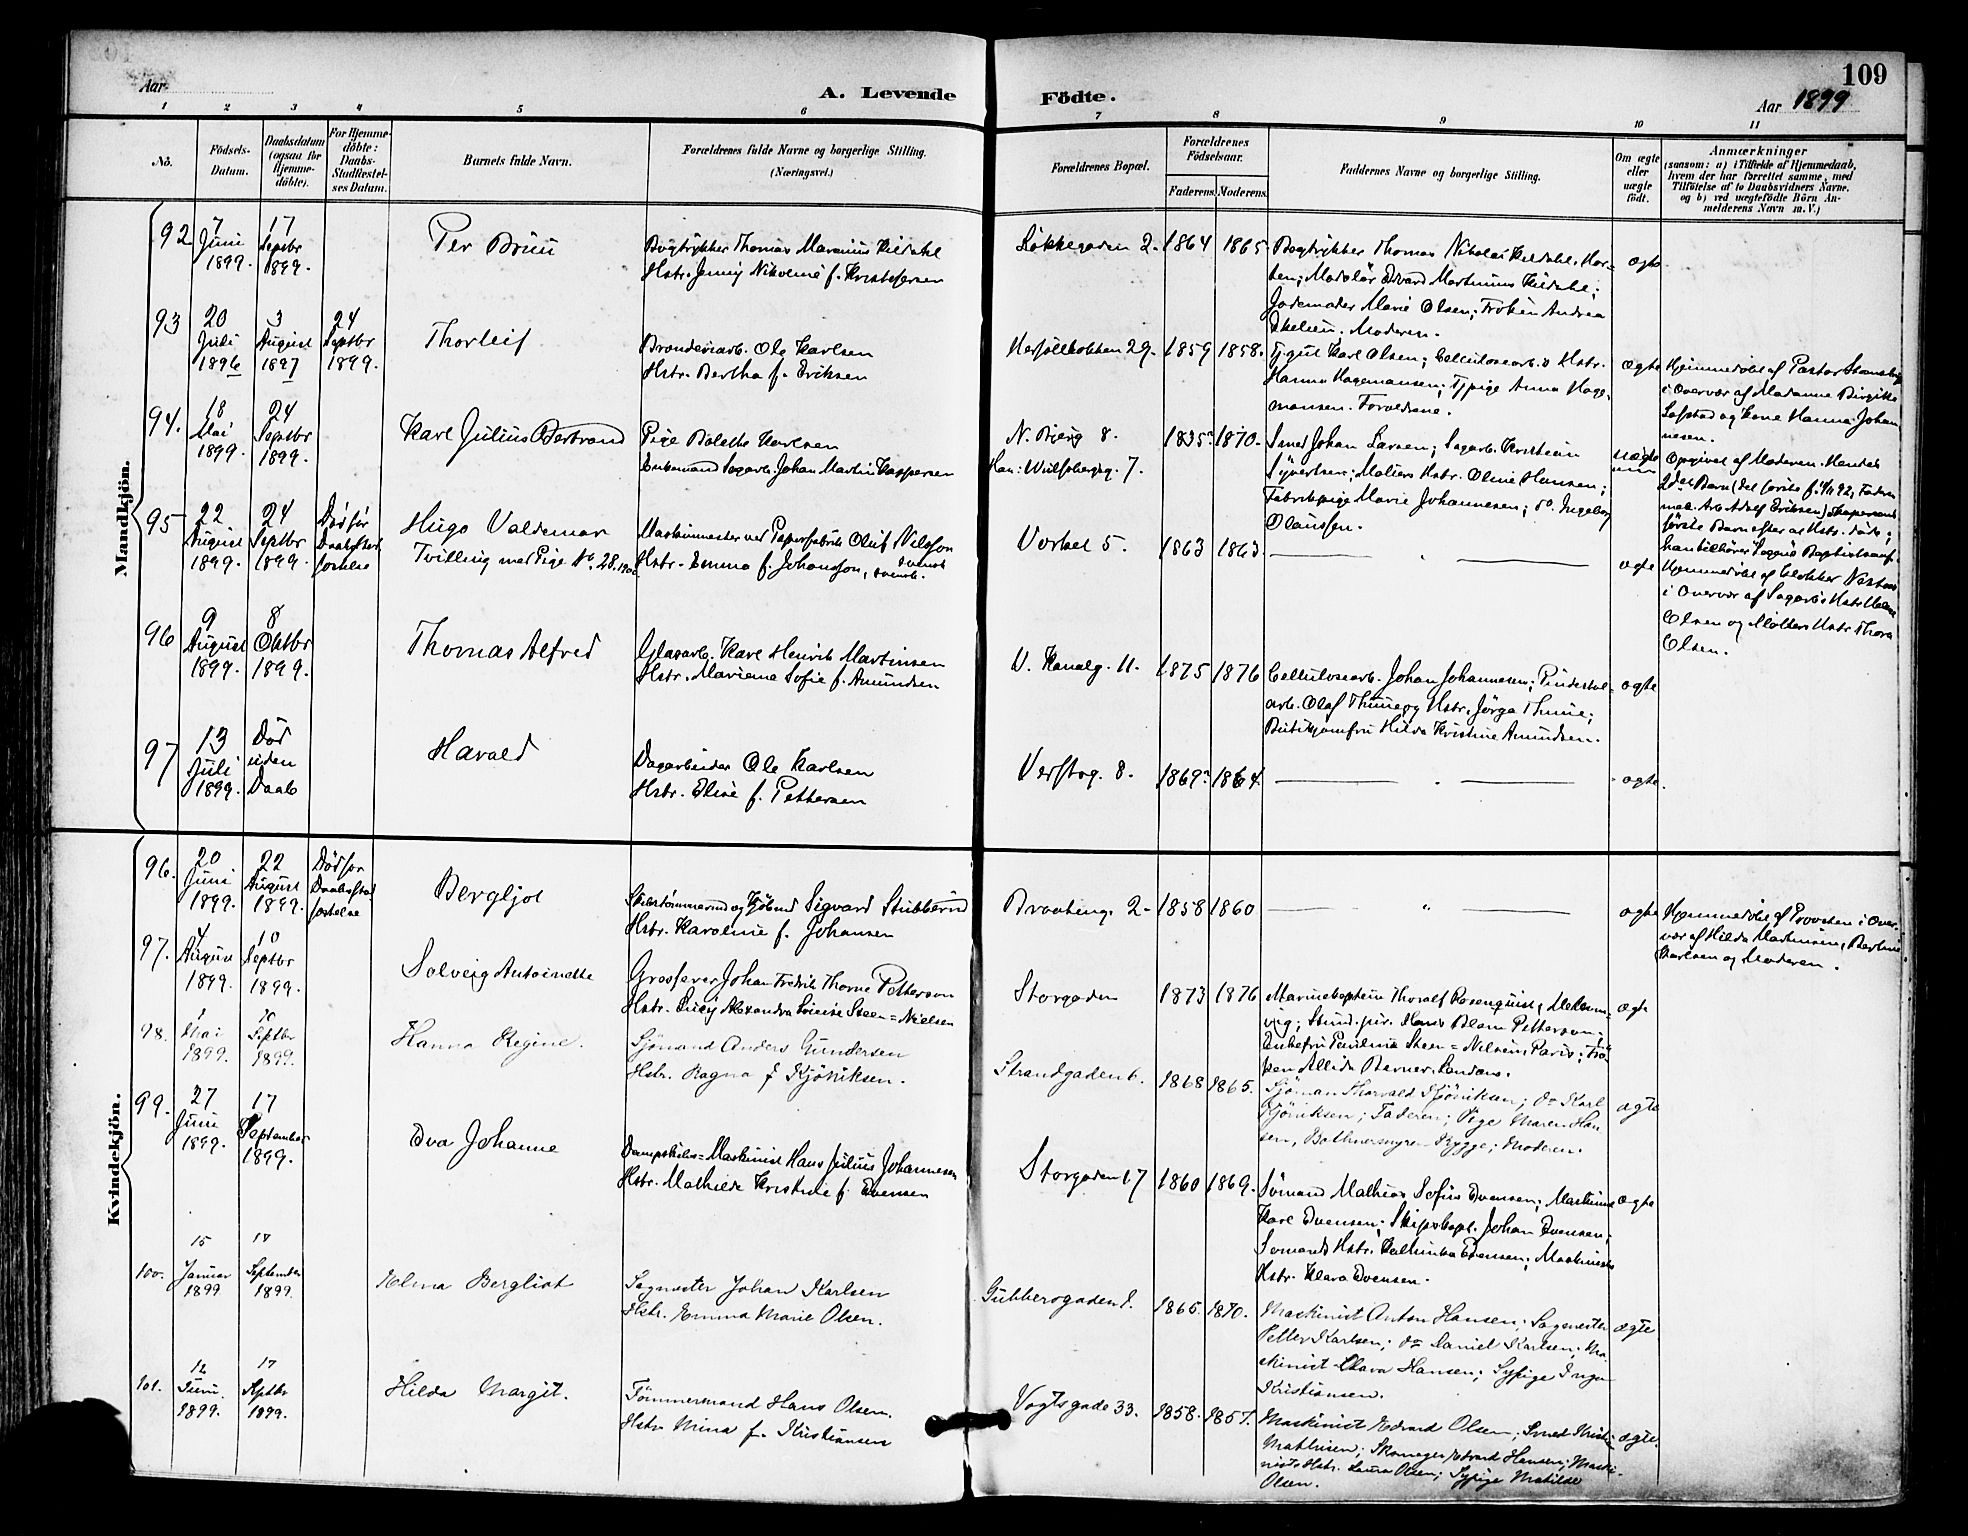 109
Aar
A. Levende
Födte.
Aar 1899
1 2 3 4 5 6 7 8 9 10 11
No.
Födsels-
Datum.
Daabsdatum
(ogsaa for
Hjemme-
döbte).
For Hjemme-
döbte:
Daabs-
Stadfæstel-
ses Datum.
Barnets fulde Navn.
Forældrenes fulde Navne og borgerlige Stilling.
(Næringsvei.)
Forældrenes Bopæl.
Forældrenes
Födselsaar.
Faderens. Moderens.
Faddernes Navne og borgerlige Stilling.
Om ægte
eller
uægte
födt.
Anmærkninger
(saasom: a) i Tilfælde af Hjemmedaab,
hvem der har forrettet samme, med
Tilföielse af to Daabsvidners Navne.
og b) ved uægtefödte Börn An-
melderens Navn m. V.)
Mandkjön.
92. 7 Juni 1899. 17 Septbr 1899.
Per Bruu
Bogtrykker Thomas Marenius Kildahl
Hstr. Jenny Nikoline f. Kristofersen
Løkkegaden 2. 1864 1865.
Bogtrykker Thomas Nikolai Kildahl. Hor-
ten; Martinius Kildahl;
Jordemoder Marie Olsen; Frøken Andrea
Moderen.
ægte
93 20 Juli 1896 3 August 1897 24 Septbr 1899.
Thorleif
Brænderiarb. Ole Karlsen
Hstr. Bertha f. Eriksen
29. 1859 1858.
Tj.gut Karl Olsen; Cellulosearb.s Hstr.
Hanna Hagemansen; Tjpige Anna Hage-
mansen. Forældrene.
ægte
Hjemmedøbt af Pastor
i Overvær af Madamme Birgitte
og Kone Hanna Johan-
nesen.
94. 18 Mai 1899. 24 Septbr 1899.
Karl Julius Bertrand
Pige Bolette Karlsen
Enkemand Sagarb. Johan Martin Kaspersen
N. Bjerg 8.
Han: Wulfsbergsg. 7.
1835 1870.
Smed Johan Larsen; Sagarb. Kristian
Syvertsen; Malers Hstr. Oline Hansen;
Fabrikpige Marie Johannesen; do. Ingeborg
Olaussen.
uægte
Opgivet af Moderen. Hendes
2det Barn (det første f. 4/11 92, Fader
Arb. Adolf Eriksen)
første Barn efter at Hstr. døde;
han tilhører
95 22 August 1899. 24 Septbr 1899. Død før Daabsstad-
fæstelse
Hugo Valdemar
Tvilling med Pige No. 28.
Maskinmester ved Papirfabrik Oluf Nilsson
Hstr. Emma f. Johansson, svensk.
svensk
Vorbet 5. 1863 1863.
ægte
Hjemmedøbt af Klokker
i Overvær af Sagarb.s Hstr.
Olsen og Møllers Hstr. Thora
Olsen.
96 9 August 1899. 8 Oktbr 1899.
Thomas Alfred
Glasarb. Karl Henrik Martinsen
Hstr. Mariane Sofie f. Amundsen
V. Kanalg. 11. 1875 1876
Cellulosearb. Johan Johannesen;
arb. Olaf Thune og Hstr. Jørga Thune;
Butikjomfru Hilda Kristine Amundsen.
ægte
97 13 Juli 1899. Død uden Daab
Harald
Dagarbeider Ole Karlsen
Hstr. Elise f. Pettersen
Verftsg. 8. 1869 1864.
ægte.
Kvindekjön.
96. 20 Juni 1899. 22 August 1899. Død før Daabsstad-
fæstelse
Bergljot
Skibstømmermd og Kjøbmd Sigvard Stubberud
Hstr. Karoline f. Johansen
Braateng. 2. 1858 1860
ægte
Hjemmedøbt af Provsten i Over-
vær af Hilda Martinsen, Berthine
Karlsen og Moderen.
97. 4 August 1899. 10 Septbr 1899.
Solveig Antoinette
Grosserer Johan Fredrik Thorne Petterson
Hstr. Lucy Alexandra Louise Steen=Nielsen
Storgaden 1873 1876
Marinekaptein Thoralf Rosenquist,
Stud. jur. Hans Blom Petterson;
Enkefru Pauline Steen=Nielsen Paris; Frø-
ken Allida Berner. London.
ægte
98. 1 Mai 1899. 10 Septbr 1899.
Hanna Regine.
Sjömand Anders Gundersen
Hstr. Ragna f. Kjöniksen.
Strandgaden 6. 1868 1865.
Sjöman Thorvald Kjöniksen; do Karl
Kjöniksen; Faderen; Pige Maren Han-
sen, Bothnermyren Rygge; Moderen.
ægte
99. 27 Juni 1899. 17 September 1899.
Eva Johanne
Dampskibs=Maskinist Hans Julius Johannesen
Hstr. Mathilde Kristine f. Evensen
Storgaden 17 1860 1869.
Sømand Mathias Sofus Evensen; Maskinist
Karl Evensen; Skibskapt. Johan Evensen;
Sømands Hstr. Kathinka Evensen; Maskinists
Hstr. Klara Evensen.
ægte
100. 15 Januar 1899 17 September 1899.
Elma Bergliot
Sagmester Johan Karlsen
Hstr. Emma Marie Olsen.
Gubberogaden 1. 1865. 1870.
Maskinist Anton Hansen; Sagmester
Petter Karlsen; do Daniel Karlsen; Ma-
skinist Olava Hansen; Sypige Inga
Kristiansen.
ægte
101. 12 Juni 1899. 17 Septbr 1899.
Hilda Margit.
Tömmermand Hans Olsen.
Hstr Mina f. Kristiansen
Vogtsgade 33. 1858. 1857.
Maskinist Edvard Olsen; Smed
Mathisen; Skomager Edvard Hansen; Maski-
nists Hstr. Laura Olsen; Sypige Matilde
Olsen.
ægte.